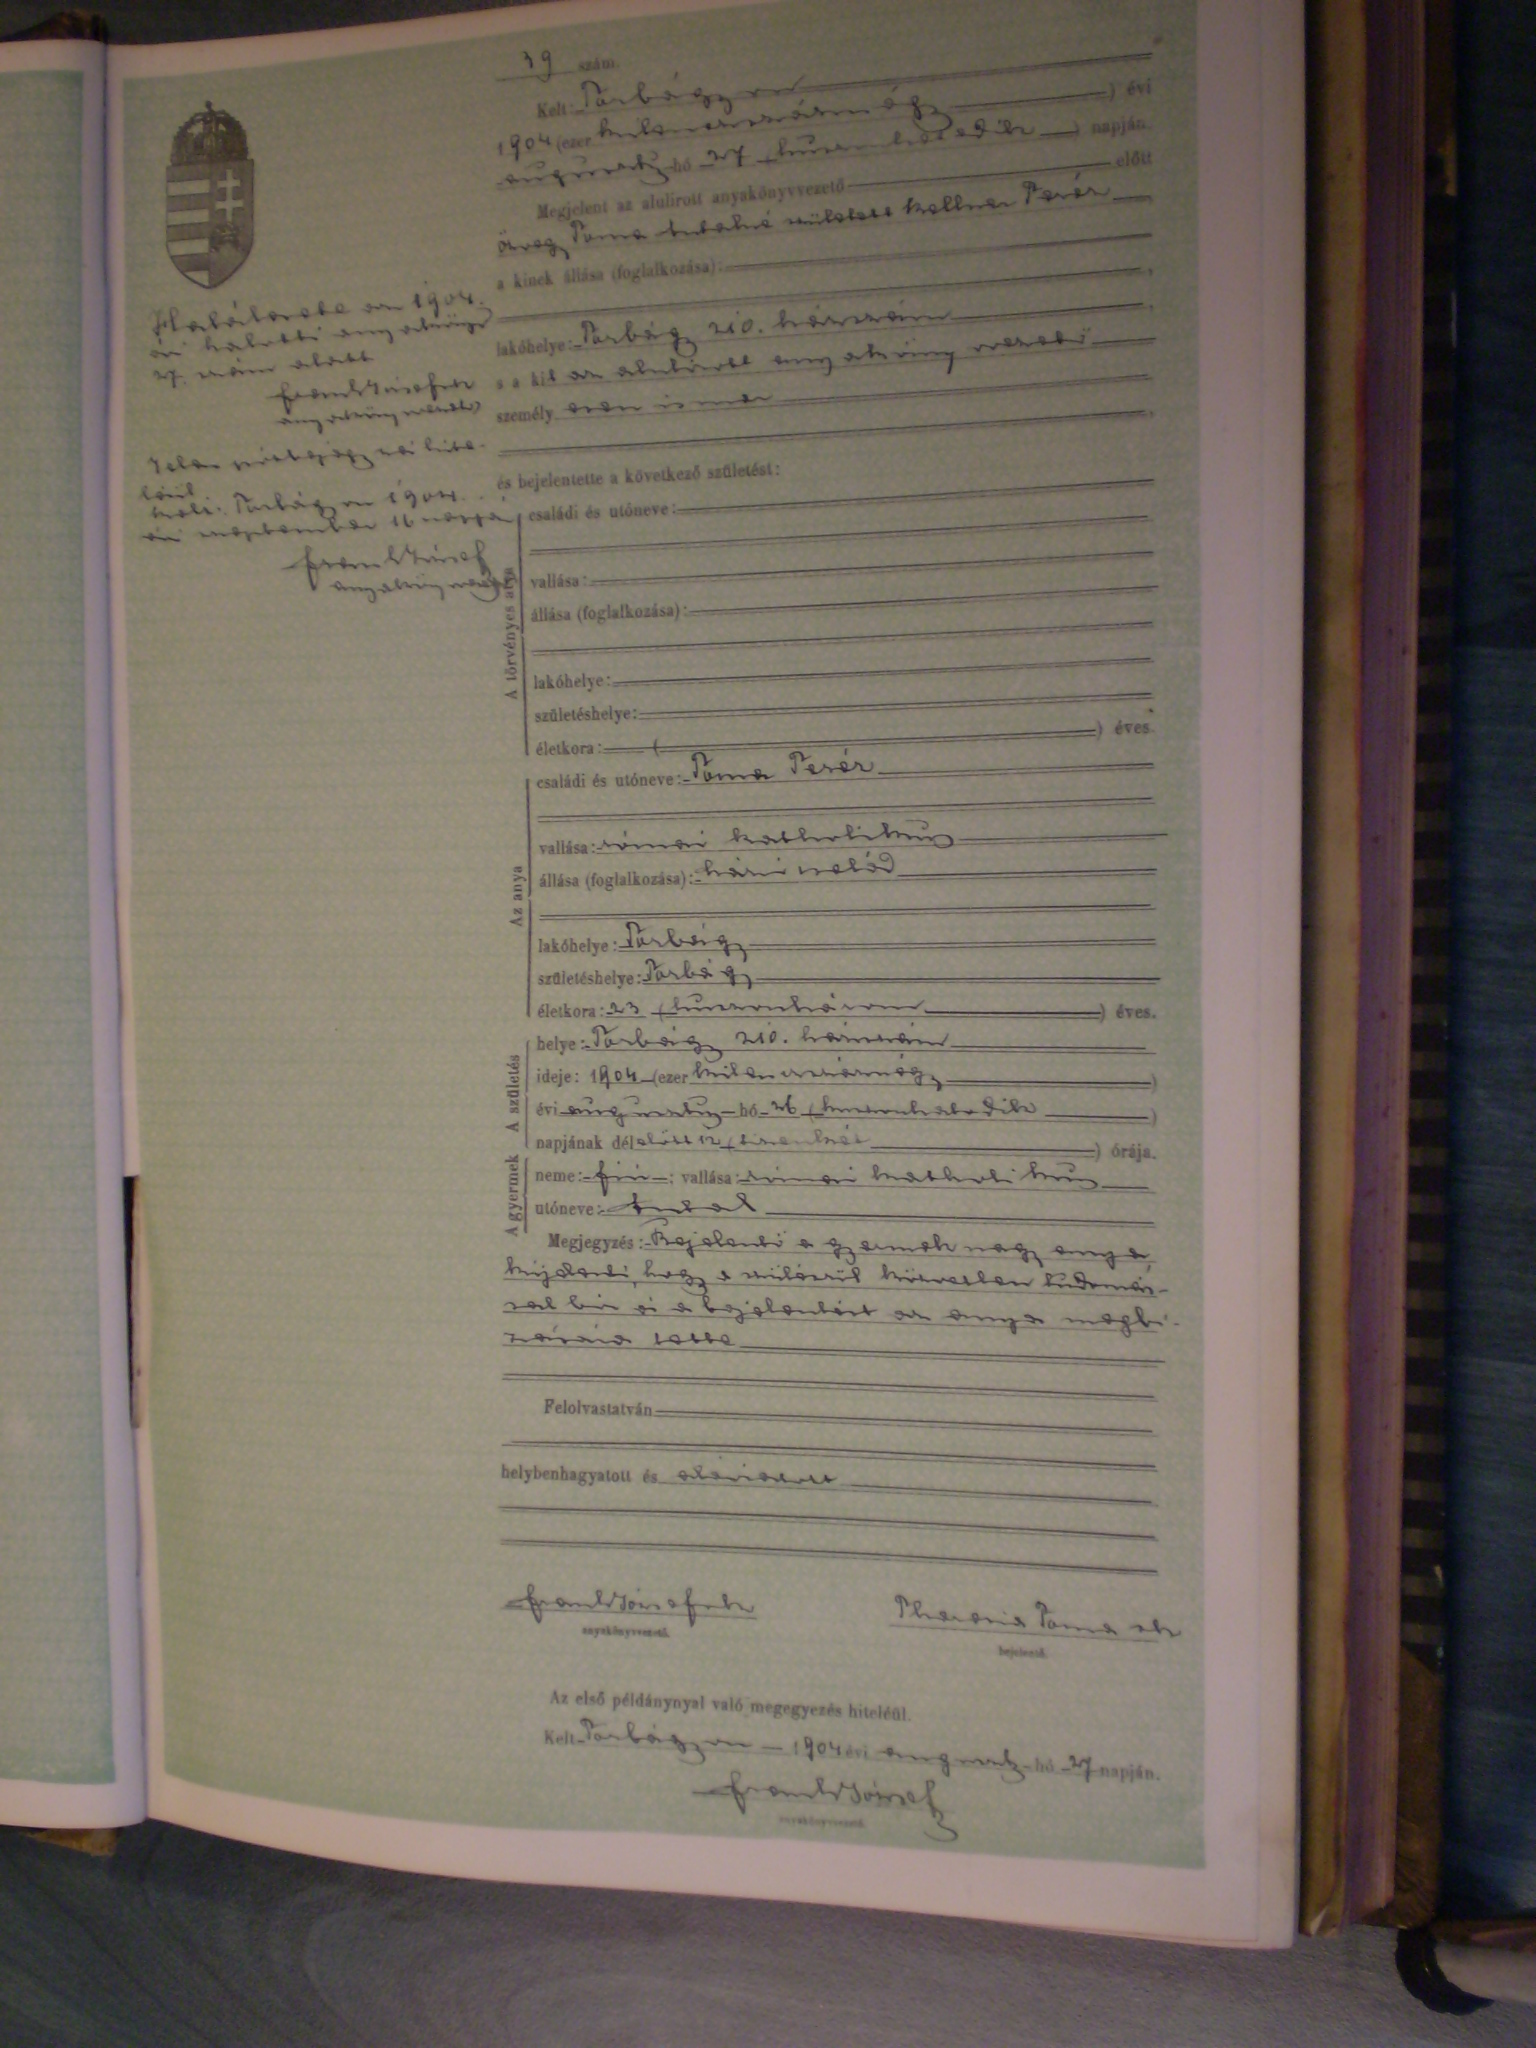 39 szám.
Kelt: Torbágyon
1904 (ezer kilencszáznégy ) évi
augusztus hó 27 (huszonhetedik ) napján.
Megjelent az alulirott anyakönyvvezető előtt
özvegy Toma Antalné született Kellner Teréz
a kinek állása (foglalkozása):
lakóhelye: Torbágy 210. házszám
s a kit az alulirott anyakönyvvezető
személyesen ismer
és bejelentette a következő születést:
A törvényes apa
családi és utóneve:
vallása:
állása (foglalkozása):
lakóhelye:
születéshelye:
életkora: ( ) éves.
Az anya
családi és utóneve: Toma Teréz
vallása: római katholikus
állása (foglalkozása): házi cseléd
lakóhelye: Torbágy
születéshelye: Torbágy
életkora: 23 (huszonhárom ) éves.
A születés
helye: Torbágy 210. házszám
ideje: 1904 (ezer kilencszáznégy )
évi augusztus hó 26 (huszonhatodik )
napjának délelőtt 12 (tizenkét ) órája.
A gyermek
neme: fiú ; vallása: római katholikus
utóneve: Antal
Megjegyzés: Bejelentő a gyermek nagyanyja
kijelenti, hogy a szülésről közvetlen tudomás-
sal bir és a bejelentést az anya megbi-
zására tette
Felolvastatván
helybenhagyatott és aláiratott
Frank József sk
anyakönyvvezető.
Theresia Toma sk
bejelentő.
Az első példánynyal való megegyezés hiteléül.
Kelt Torbágyon 1904 évi augusztus hó 27 napján.
Frank József
anyakönyvvezető.
Halálesete az 1904.
évi halotti anyakönyv
27. szám alatt
Frank József sk
anyakönyvvezető
Jelen utólagos
Kelt: Torbágyon 1904.
évi szeptember 16 napján
Frank József
anyakönyvvezető